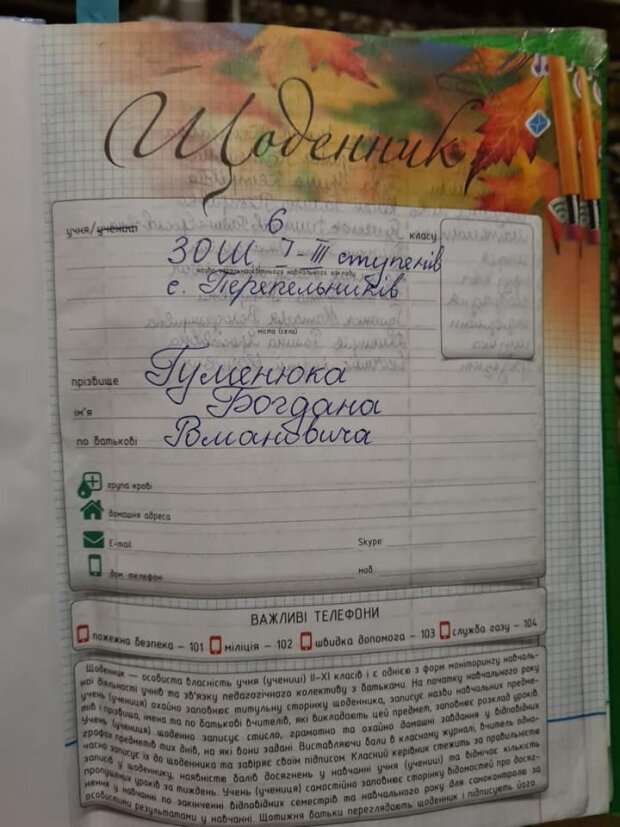 Щоденник
учня/учениці 6 класу
ЗОШ I-III ступенів
назва загальноосвітнього навчального закладу
с. Перепельників
міста (села)
прізвище Гуменюка
ім'я Богдана
по батькові Романовича
група крові
домашня адреса
E-mail Skype
дом. телефон моб.
ВАЖЛИВІ ТЕЛЕФОНИ
пожежна безпека – 101 міліція – 102 швидка допомога – 103 служба газу – 104
Щоденник — особиста власність учня (учениці) II-XI класів і є однією з форм моніторингу навчаль-
ної діяльності учнів та зв'язку педагогічного колективу з батьками. На початку навчального року
учень (учениця) охайно заповнює титульну сторінку щоденника, записує назви навчальних предме-
тів і прізвища, імена та по батькові вчителів, які викладають цей предмет, заповнює розклад уроків.
Учень (учениця) щоденно записує стисло, грамотно та охайно домашні завдання у відповідних
графах предметів тих днів, на які вони задані. Виставляючи бали в класному журналі, вчитель одно-
часно записує їх до щоденника та завіряє своїм підписом. Класний керівник стежить за правильністю
записів у щоденнику, наявністю балів досягнень у навчанні учня (учениці) та відмічає кількість
пропущених уроків за тиждень. Учень (учениця) самостійно заповнює сторінку відомостей про досяг-
нення у навчанні по закінченні відповідних семестрів та навчального року для самоконтролю за
особистими результатами у навчанні. Щотижня батьки переглядають щоденник і підписують його.